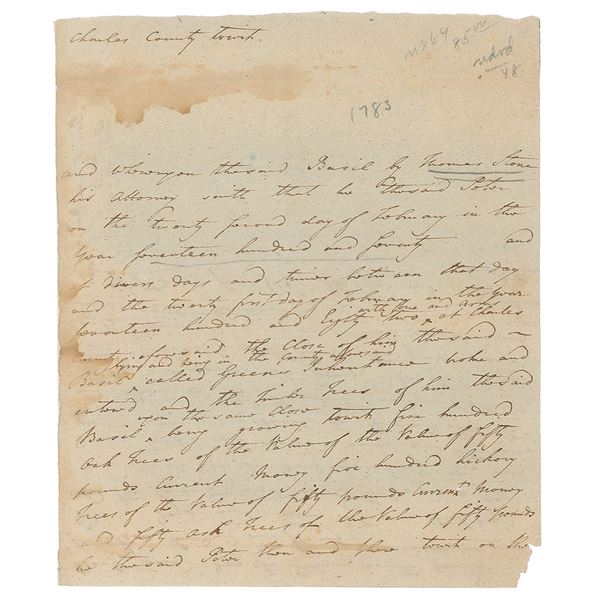 Charles County towit.
85 00
48
1783
and whereupon thesaid Basil by Thomas Stone
his Attorney saith that he thesaid Peter
on the twenty second day of February in the
Year Seventeen hundred and Seventy and
divers days and times between that day
and the twenty first day of February in the Year
Seventeen hundred and Eighty two with force and Arms at Charles
County aforesaid the Close of him thesaid
Basil lying and being in the County aforesaid called Greens Inheritance broke and
entered and the timber Trees of him thesaid
Basil upon the same Close being growing towit five hundred
Oak Trees of the Value of the Value of fifty
pounds Current Money five hundred hickory
Trees of the Value of fifty pounds Current Money
and fifty ash Trees of the Value of fifty pounds
he thesaid Peter then and there towit on the